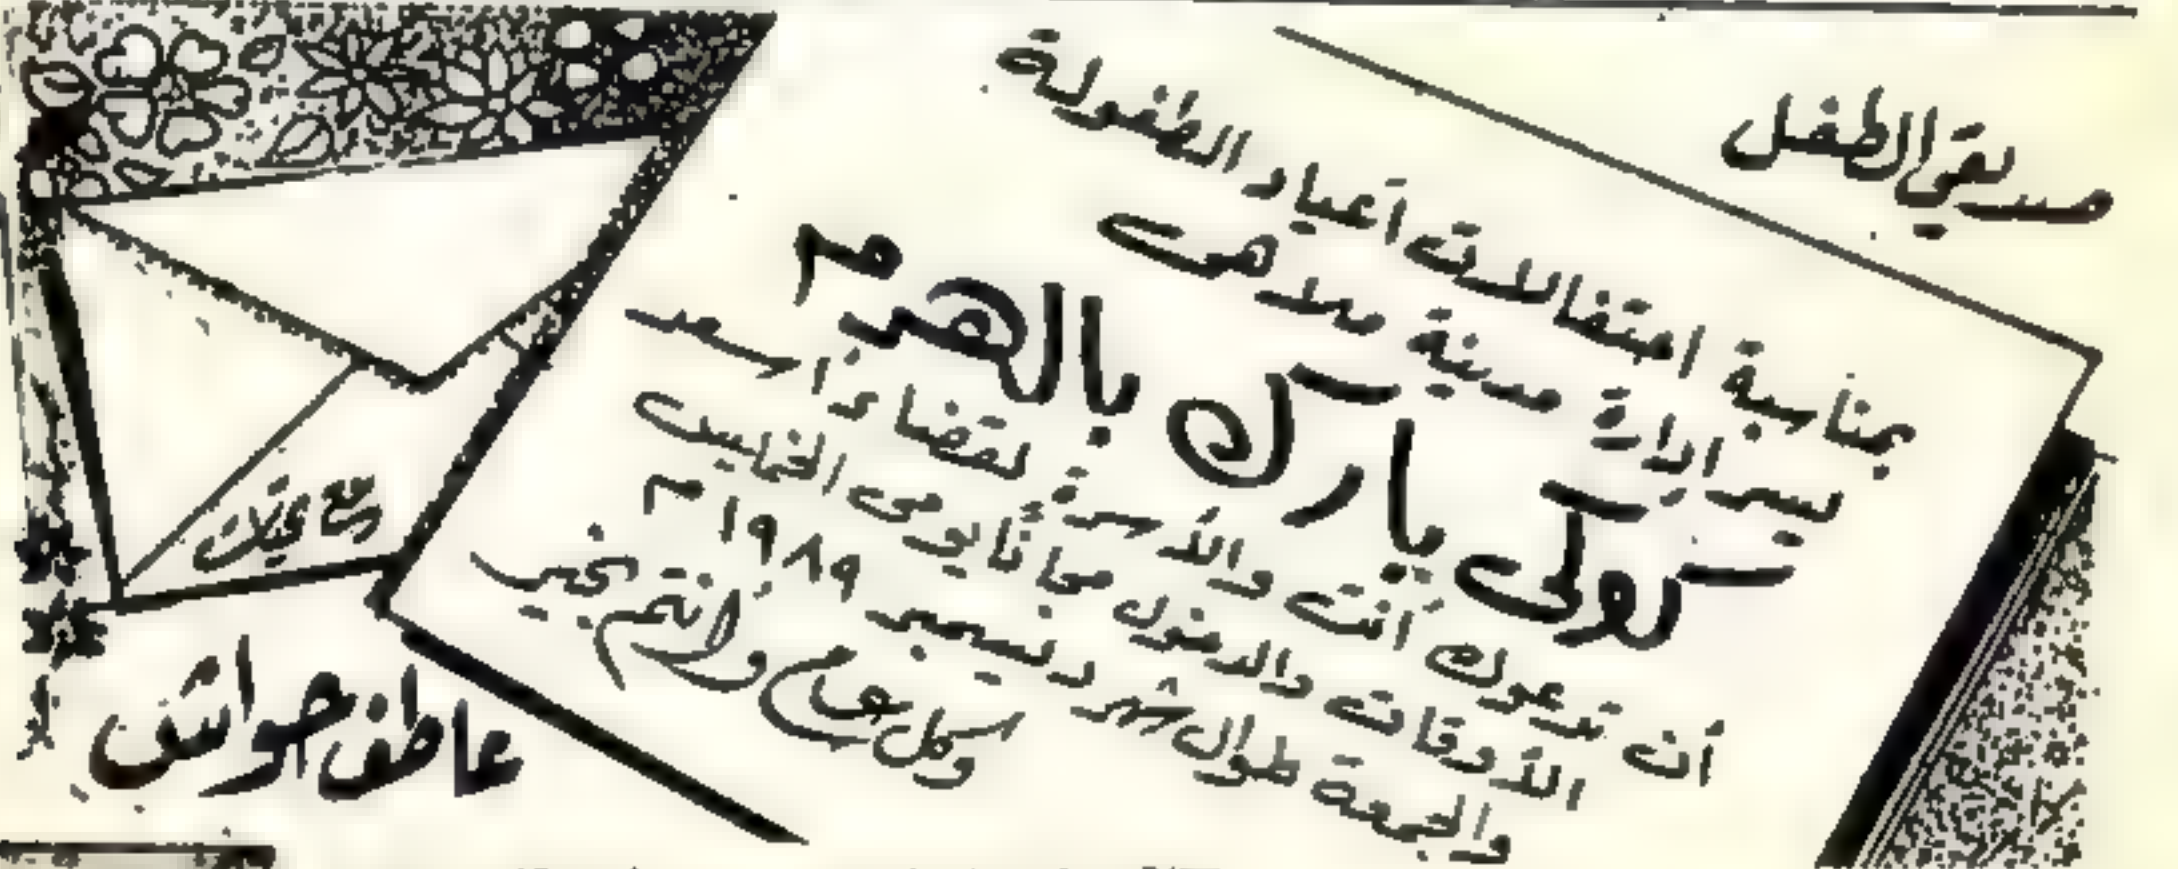 صديقي الطفل
بمناسبة احتفالات أعياد الطفولة
يسر ادارة مدينة ملاهى
كوكى بارك بالهرم
أن تدعوك أنت والأسرة لقضاء أسعد
الأوقات والدخول مجاناً يومى الخميس
والجمعة طوال شهر ديسمبر ١٩٨٩ م
وكل عام وانتم بخير
مع تحيات
عاطف حواش